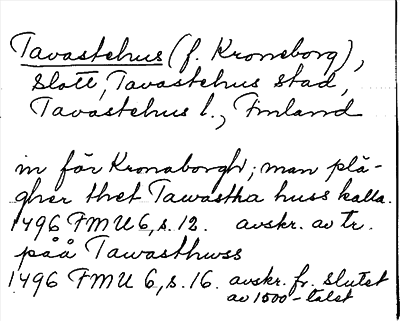 Tavastehus (f. Kroneborg),
slott, Tavastehus stad,
Tavastehus l., Finland
in för Kronaborgh; man plä-
gher thet Tawastha huss kalla.
1496 FMU 6, s. 12. avskr. av tr.
påå Tawasthwss
1496 FMU 6, s. 16. avskr. fr. slutet
av 1500-talet